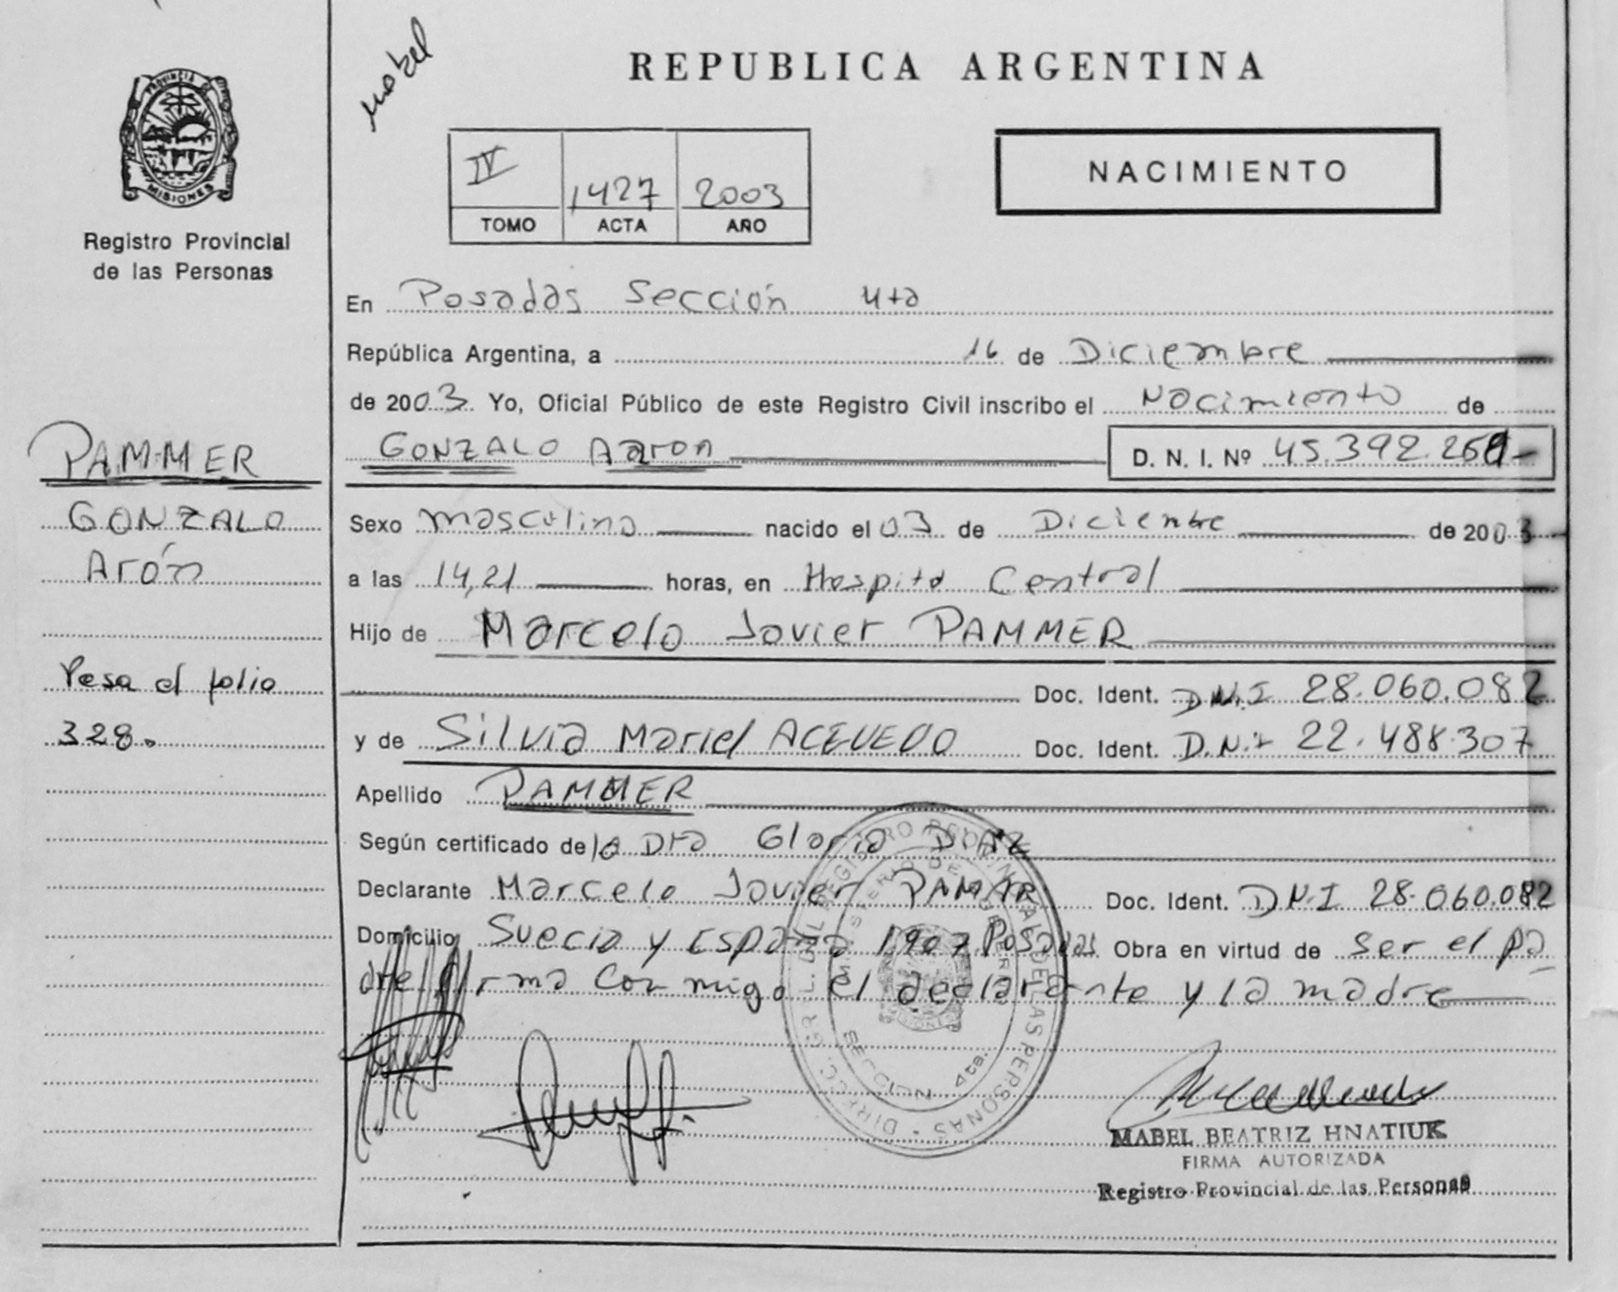 mabel
REPUBLICA ARGENTINA
PROVINCIA DE
MISIONES
IV 1427 2003
TOMO ACTA AÑO
NACIMIENTO
Registro Provincial
de las Personas
En Posadas Sección 4ta
República Argentina, a 16 de Diciembre
de 2003 Yo, Oficial Público de este Registro Civil inscribo el Nacimiento de
GONZALO Aaron D. N. I. Nº 45.392.26
PAMMER
GONZALO
Arón
Sexo masculino nacido el 03 de Diciembre de 2003
a las 14,21 horas, en Hospital Central
Hijo de Marcelo Javier PAMMER
Pesa al folio
328.
Doc. Ident. D.N.I 28.060.082
y de Silvia Mariel ACEVEDO Doc. Ident. D.N.I 22.488.307
Apellido PAMMER
Según certificado de la Dra Gloria DIAZ
Declarante Marcelo Javier PAMAR Doc. Ident. D.N.I 28.060.082
Domicilio Suecia y España 1907 Posadas Obra en virtud de ser el pa
dre firma con migo el declarante y la madre
DIRECC. GRAL. DEL REGISTRO PROVINCIAL DE LAS PERSONAS
MINISTERIO DE GOBIERNO
MISIONES
SECCION 4ta.
MABEL BEATRIZ HNATIUK
FIRMA AUTORIZADA
Registro Provincial de las Personas